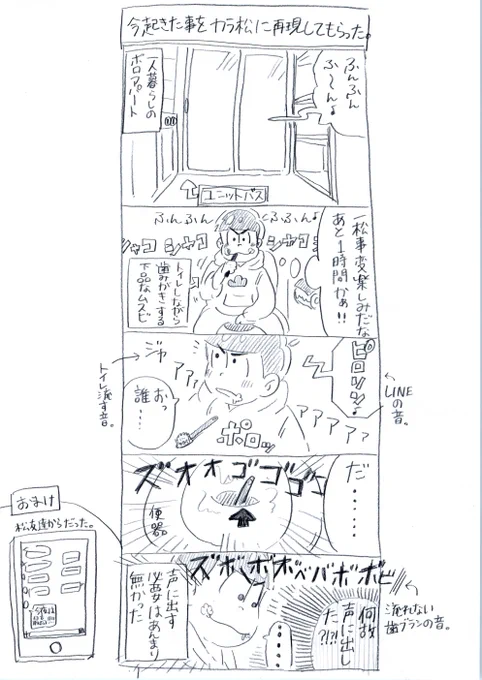 今起きた事をカラ松に再現してもらった。
ふんふん
ふ〜ん♪
一人暮らしの
ボロアパート
ユニットバス
一松事変楽しみだな
あと1時間かぁ!!
ふんふん
くふふん♪
シャコ シャコ
シャコ
トイレしながら
歯みがきする
下品なムスビ
ピロリン♪
LINE
の音。
ジャ
アアァ
アアアアア
トイレ流す音。
おっ
誰
……
ポロッ
だ……
ズオオゴゴゴゴ
便器
ズボボボベバボボビ
流れない
歯ブラシの音。
何故
声に出し
た?!?!
……
声に出す
必要はあんまり
無かった
おまけ
松友達からだった。